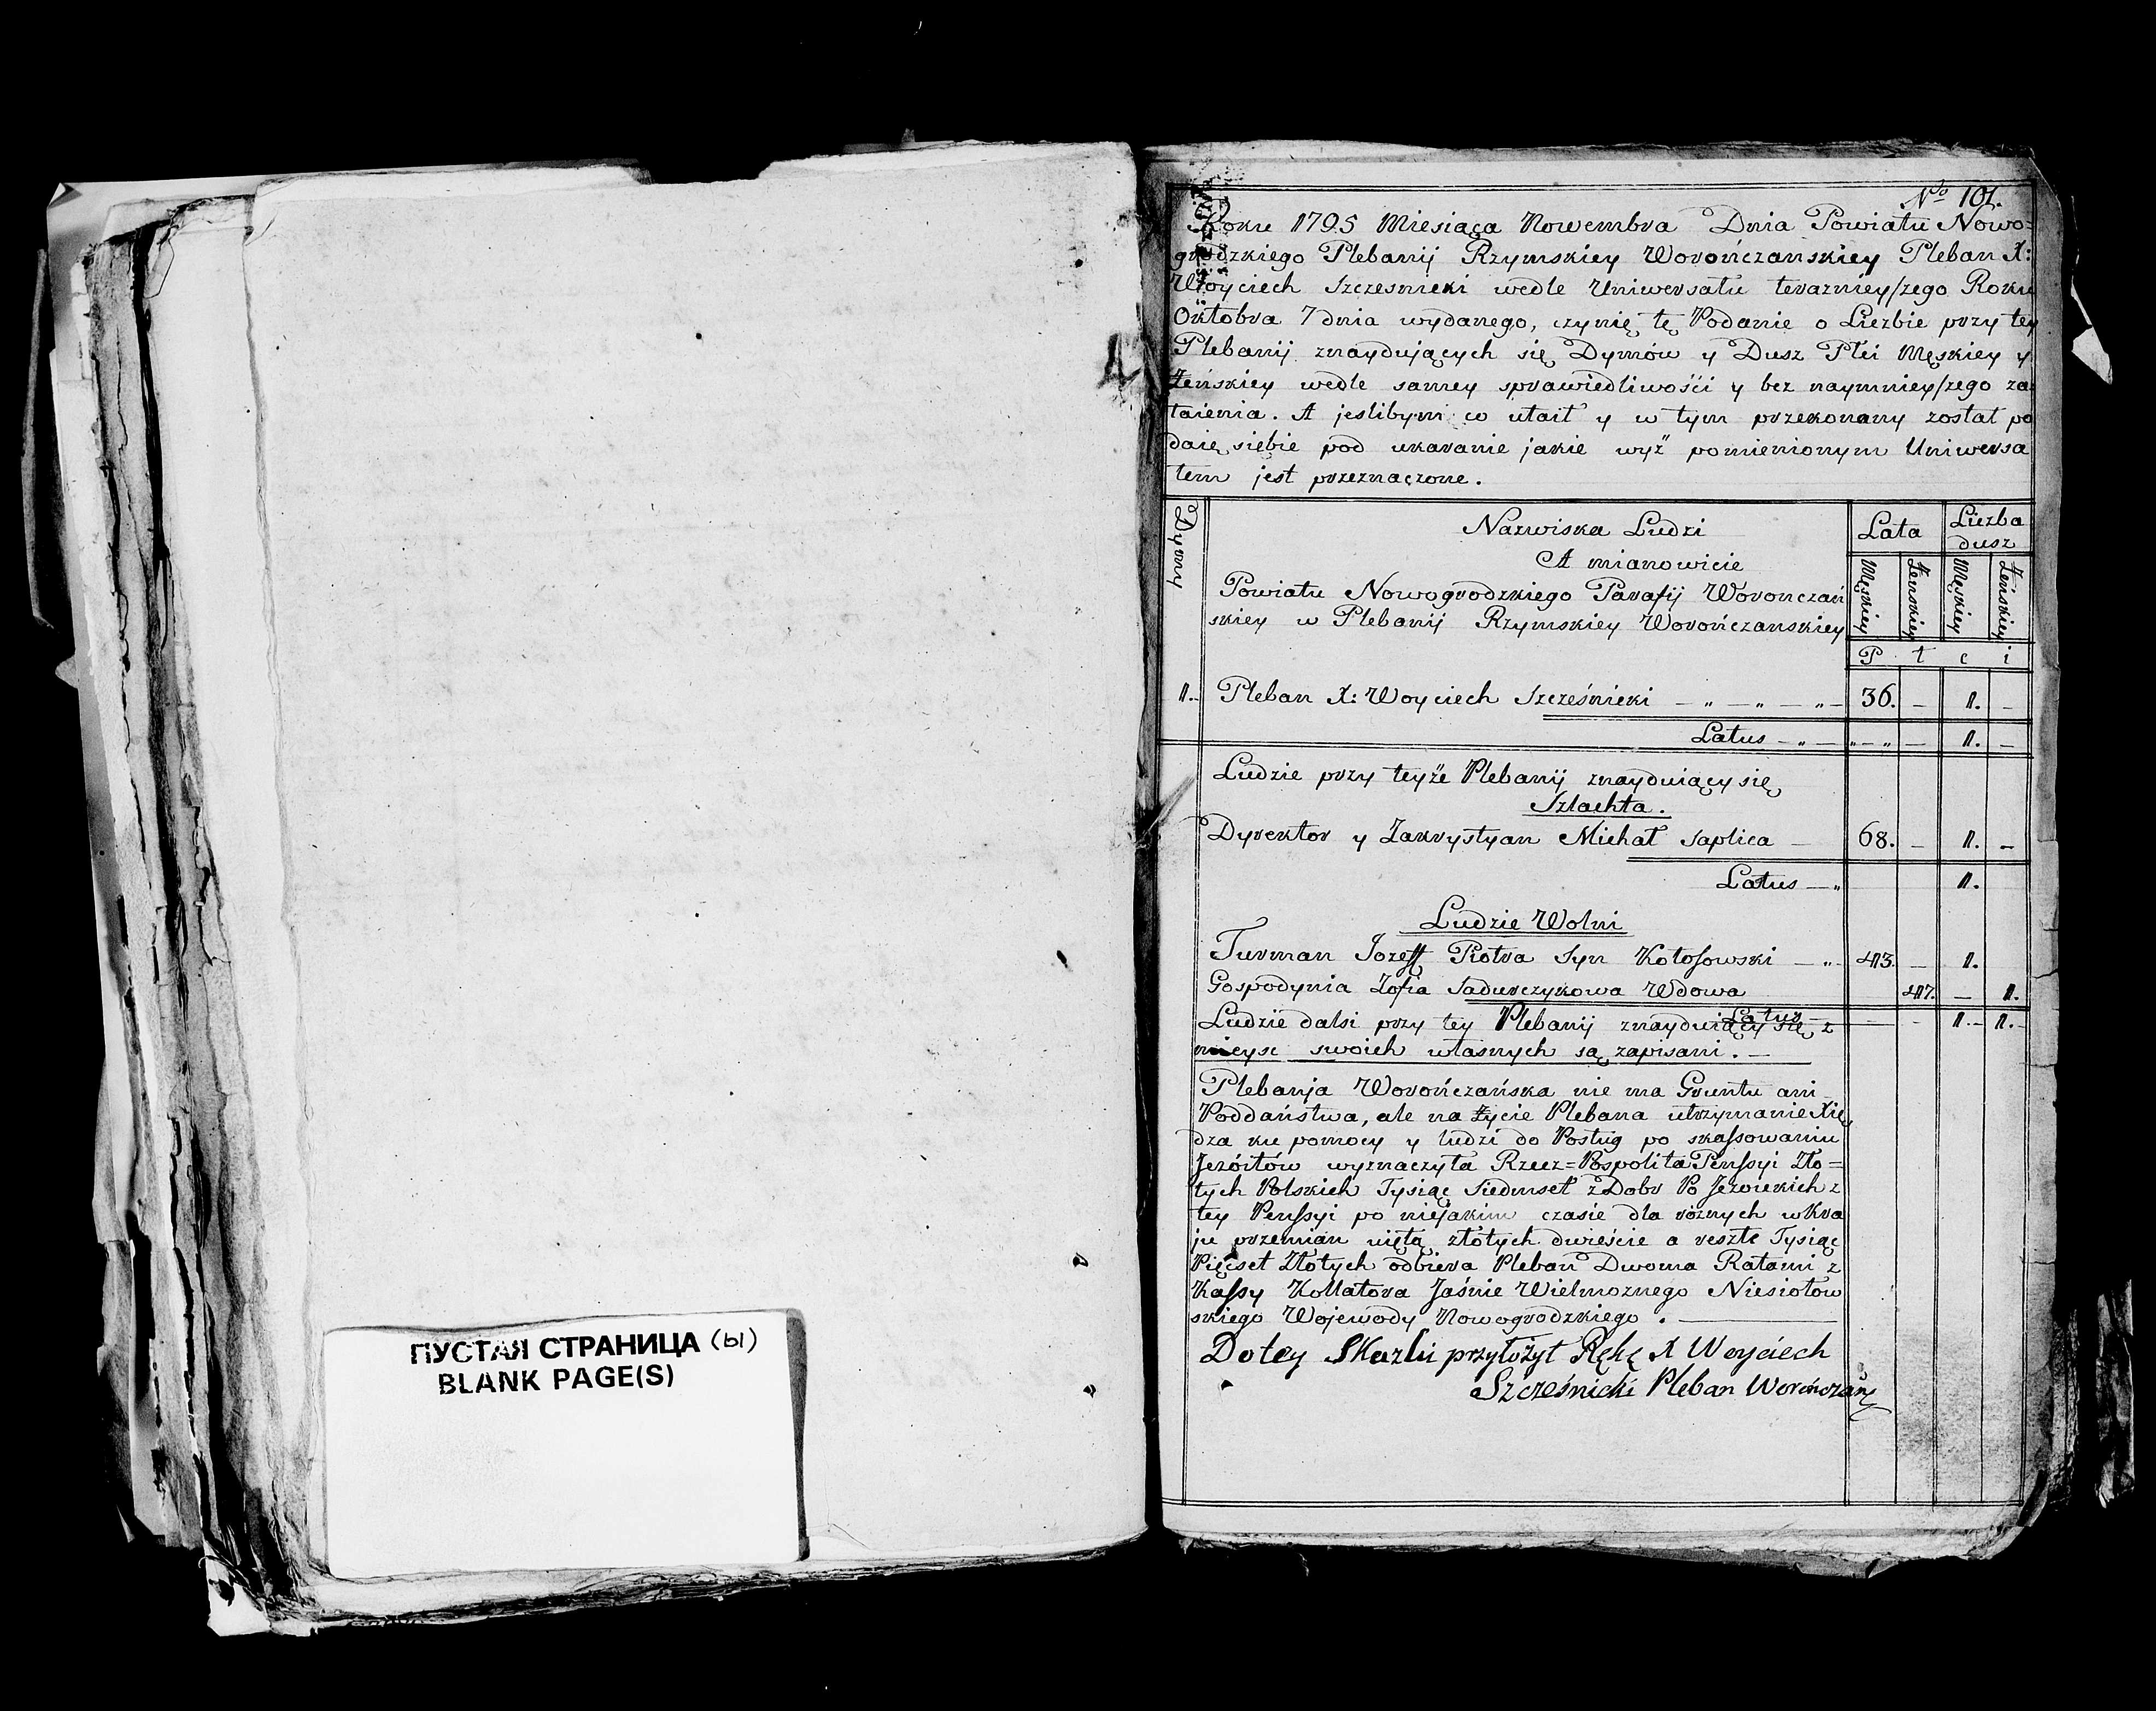 ПУСТАЯ СТРАНИЦА (ы)
BLANK PAGE(S)
No 101.
Roku 1795 Miesiąca Nowembra Dnia Powiatu Nowo=
grodzkiego Plebanij Rzymskiey Worończanskiey Pleban X:
Woyciech Szczesnicki wedle Uniwersału terazniey/zego Roku
Oktobra 7 dnia wydanego, czynię tę Podanie o Liczbie przy tey
Plebanij znaydujących się Dymów y Dusz Płci Męskiey y
Żeńskiey wedle samey sprawiedliwośći y bez naymniey/zego za
taienia. A jeslibym co utaił y w tym przekonany został po
daię siebie pod ukaranie jakie wyż pomienionym Uniwersa
łem jest przeznaczone.
Dymy
Nazwiska Ludzi
Lata
Liczba dusz
A mianowicie
Męskiey Żenskiey Męskiey Żeńskiey
Powiatu Nowogrodzkiego Parafij Worończań
skiey w Plebanij Rzymskiey Worończanskiey
P ł c i
1.- Pleban X: Woyciech Szcześnicki - „ - „ - „ - 36. - 1. -
Latus - „ - „ - „ - 1. -
Ludzie przy teyże Plebanij znayduiący się
Szlachta.
Dyrektor y Zakrystyan Michał Saplica - 68. - 1. -
Latus - „ 1.
Ludzie Wolni
Furman Jozeff Piotra Syn Kołosowski - „ - 43. - 1.
Gospodynia Zofia Sadurczykowa Wdowa 47. - 1.
Latus - - - 1. - 1. -
Ludzie dalsi przy tey Plebanij znayduiący się z
mieysc swoich własnych są zapisani. -
Plebanja Worończańska nie ma Gruntu ani
Poddaństwa, ale na życie Plebana utrzymanie Xię
dza ku pomocy y ludzi do Posług po skassowaniu
Jezóitów wyznaczyła Rzecz=Pospolita Penssyi Zło=
tych Polskich Tysiąc Siedmset z Dobr Po Jezoickich z
tey Penssyi po niejakim czasie dla rożnych w Kra
ju przemian ujętą złotych dwieście a reszte Tysiąc
Pięcset Złotych odbiera Pleban Dwoma Ratami z
Kassy Kollatora Jaśnie Wielmoznego Niesiołow
skiego Wojewody Nowogrodzkiego. -
Do tey Skazki przyłożył Rękę X Woyciech
Szcześnicki Pleban Worończań